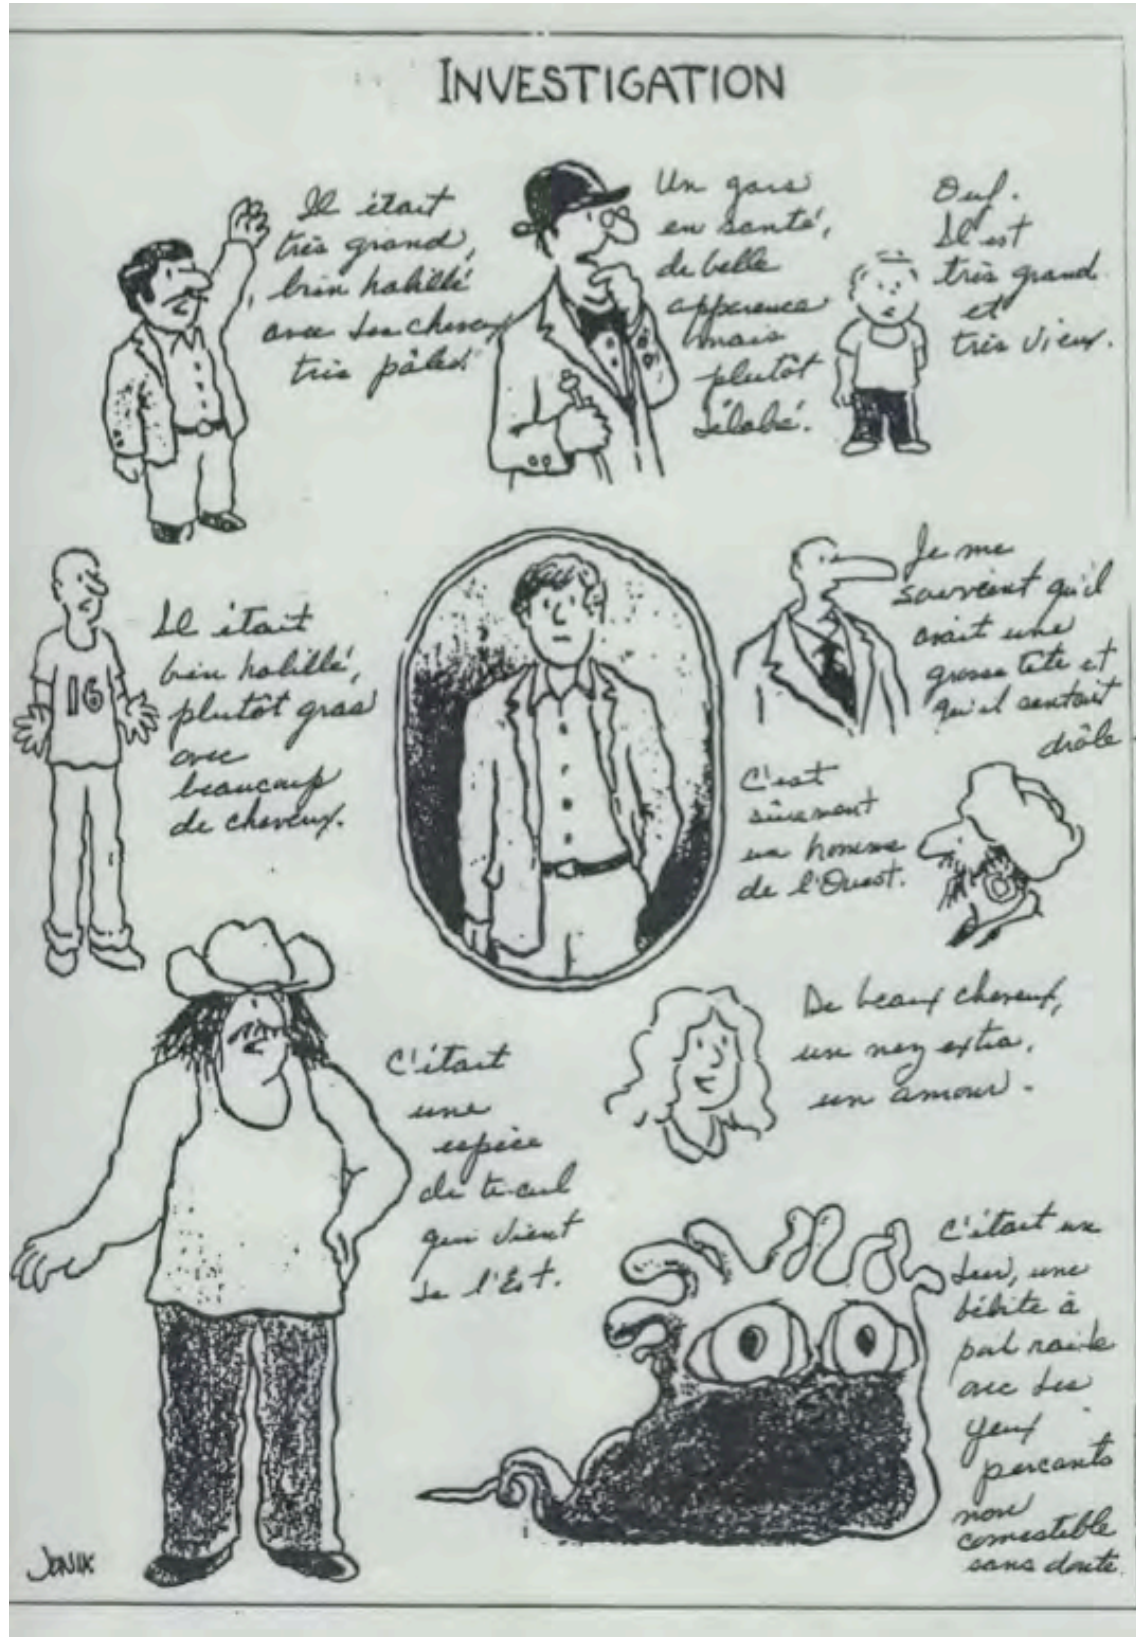 INVESTIGATION
Il était
très grand,
bien habillé
avec des cheveux
très pâles.
Un gars
en santé,
de belle
apparence
mais
plutôt
délabé.
Ouf.
Il est
très grand
et
très vieux.
Il était
bien habillé,
plutôt gras
avec
beaucoup
de cheveux.
Je me
souvient qu'il
avait une
grosse tête et
qu'il sentait
drôle
C'est
sûrement
un homme
de l'Ouest.
C'était
une
espèce
de ti-cul
qui vient
de l'Est.
De beaux cheveux,
un nez extra,
un amour.
C'était un
dur, une
bébite à
poil
avec des
yeux
percants
non
comestible
sans doute.
JONIK